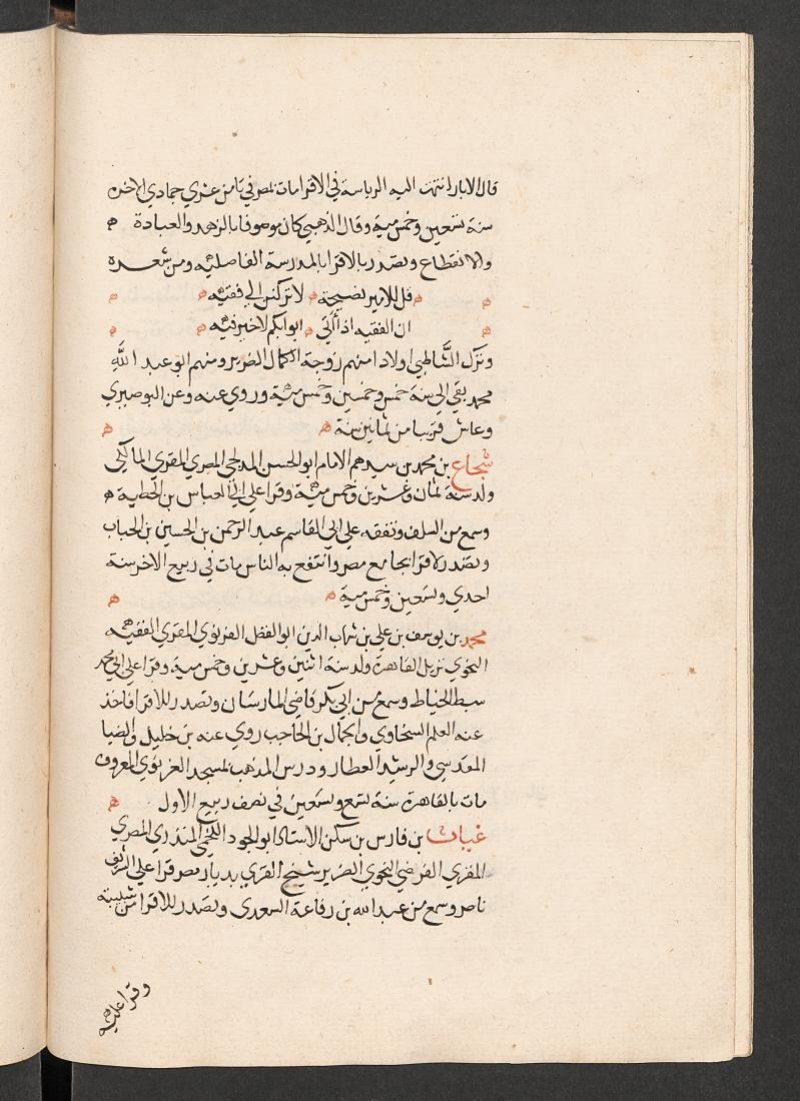 قال الابار انتهت اليه الرياسة في الاقرا مات بمصر في ثامن عشري جمادي الاخره
سنة تسعين وخمس مية وقال الذهبي كان موصوفا بالزهد والعبادة ه
والانقطاع وتصدر بالاقرا بالمدرسة الفاضلية ومن شعره
ه قل للامير نصيحة ه لا تركنن الي فقيه ه ه
ه ان الفقيه اذا اتي ه ابوابكم لا خير فيه ه ه
وترك الشاطبي اولادا منهم زوجة الكمال الضرير ومنهم ابو عبد الله
محمد بقي الي سنة خمس وخمسين وخمس مية وروي عنه وعن البوصيري
وعاش قريبا من ثمانين سنة ه ه
شجاع بن محمد بن سيدهم الامام ابو الحسن المدلجي المصري المقري المالكي
ولد سنة ثمان وعشرين وخمس مية وقرا علي ابي العباس بن الحطية ه
وسمع من السلف وتفقه علي ابي القاسم عبد الرحمن بن الحسين بن الحباب
وتصدر لاقرا بجامع مصر وانتفع به الناس مات في ربيع الاخر سنة
احدي وتسعين وخمس مية ه ه
محمد بن يوسف بن علي بن شهاب الدين ابو الفضل الغزنوي المقري الفقيه
النحوي نزيل القاهرة ولد سنة اثنين وعشرين وخمس مية وقرا علي ابي محمد
سبط الخياط وسمع من ابي بكر قاضي المارستان وتصدر للاقرا فاخذ
عنه العلم السخاوي والجمال بن الحاجب روي عنه بن خليل والضيا
المقدسي والرشيد العطار ودرس المذهب بمسجد الغزنوي المعروف
مات بالقاهرة سنة تسع وتسعين في نصف ربيع الاول ه
غياث بن فارس بن سكن الاستاد ابو الجود اللخمي المنذري المصري
المقري الفرضي النحوي الضرير شيخ القري بديار مصر قرا علي الشريف
ناصر وسمع من عبد الله بن رفاعة السعدي وتصدر للاقرا من شبيبته
وقرا عليه